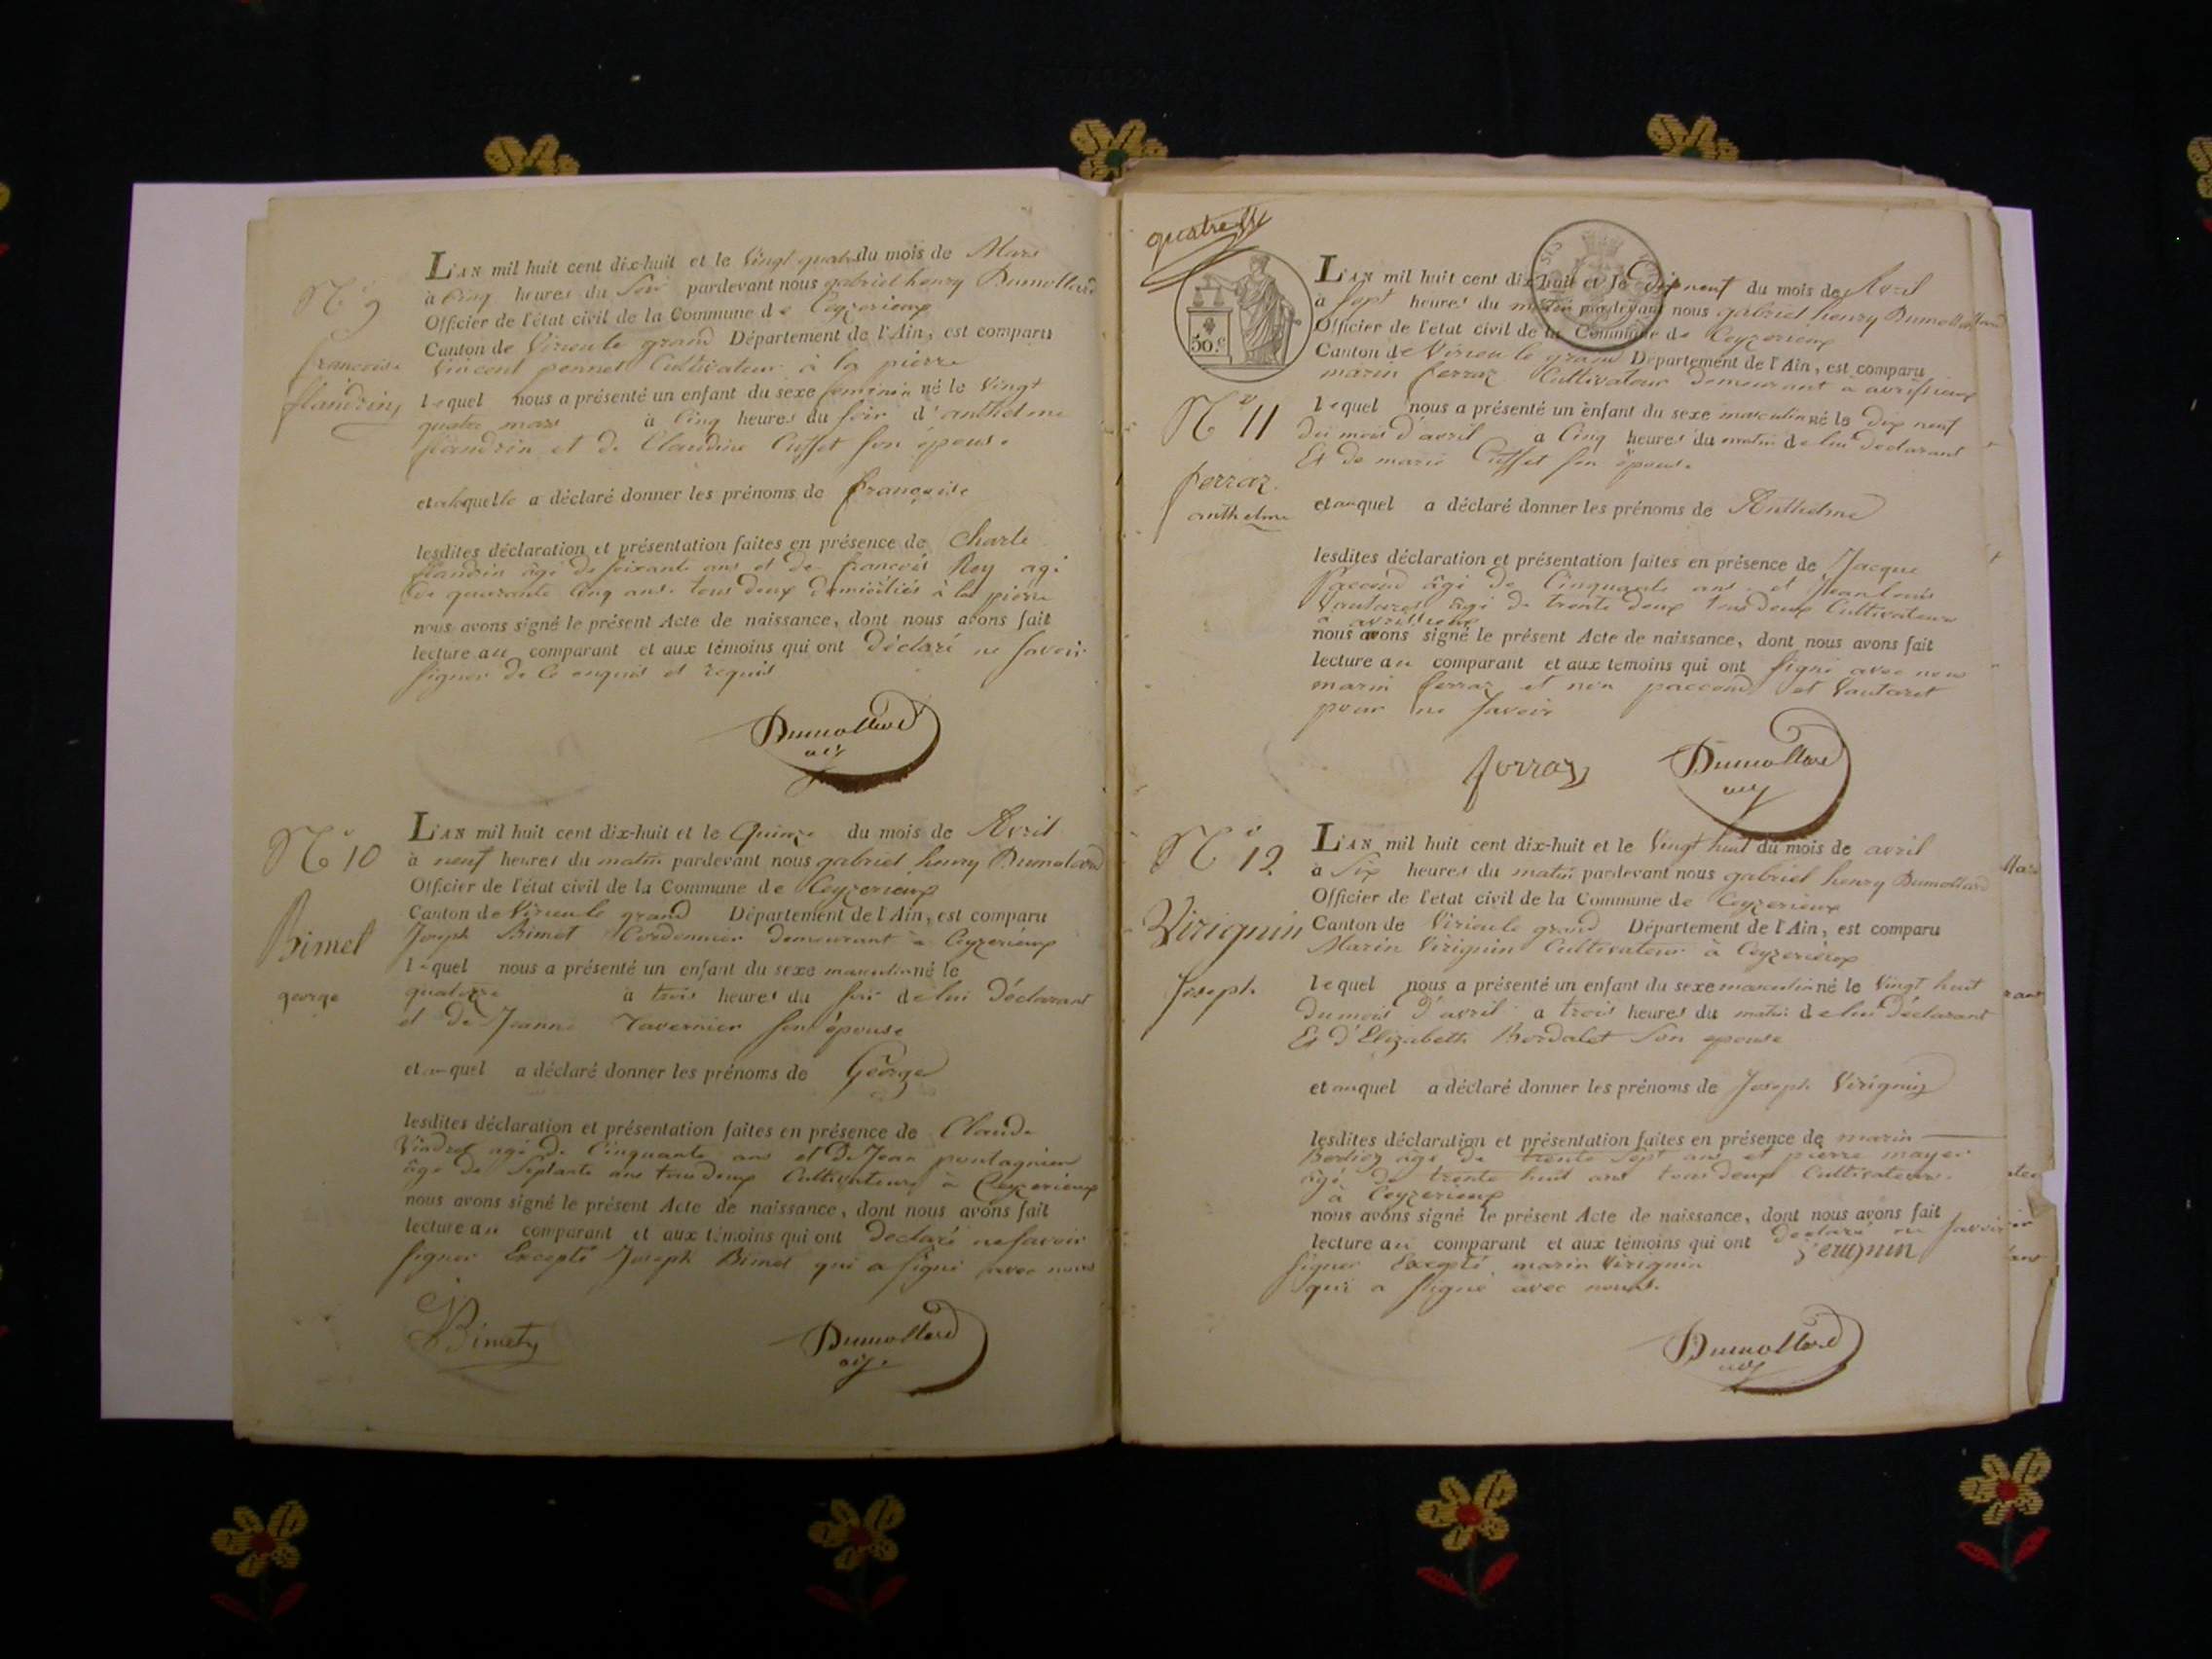 N° 9
françoise
flandrin
L'AN mil huit cent dix-huit et le Vingt quatre du mois de Mars
à Cinq heures du Soir pardevant nous gabriel henry Dumollard
Officier de l'état civil de la Commune de Ceyzerieux
Canton de Virieu le grand Département de l'Ain, est comparu
Vincent pennet Cultivateur à la pierre
lequel nous a présenté un enfant du sexe feminin né le Vingt
quatre mars à Cinq heures du soir d'anthelme
flandrin et de Claudine Cusset son épouse
et à laquelle a déclaré donner les prénoms de françoise
lesdites déclaration et présentation faites en présence de Charle
flandrin âgé de soixante ans et de françois Rey agé
de quarante Cinq ans tous deux domiciliés à la pierre
nous avons signé le présent Acte de naissance, dont nous avons fait
lecture au comparant et aux témoins qui ont déclaré ne savoir
signer de ce enquis et requis
Dumollard
N° 10
Bimet
george
L'AN mil huit cent dix-huit et le Quinze du mois de Avril
à neuf heures du matin pardevant nous gabriel henry Dumollard
Officier de l'état civil de la Commune de Ceyzerieux
Canton de Virieu le grand Département de l'Ain, est comparu
Joseph Bimet Cordonnier demeurant à Ceyzerieux
lequel nous a présenté un enfant du sexe masculin né le
quatorze à trois heures du soir de lui déclarant
et de Jeanne Tavernier son épouse
et auquel a déclaré donner les prénoms de George
lesdites déclaration et présentation faites en présence de Claude
Vindret agé de Cinquante ans et de Jean pontagnier
âgé de Septante ans tous deux Cultivateurs à Ceyzerieux
nous avons signé le présent Acte de naissance, dont nous avons fait
lecture au comparant et aux témoins qui ont declaré ne savoir
signer Excepté Joseph Bimet qui a signé avec nous
Bimet
Dumollard
quatre
50.c
N° 11
ferraz
anthelme
L'AN mil huit cent dix-huit et le Dix neuf du mois de Avril
à Sept heures du matin pardevant nous gabriel henry Dumollard
Officier de l'état civil de la Commune de Ceyzerieux
Canton de Virieu le grand Département de l'Ain, est comparu
marin ferraz Cultivateur demeurant à avrissieux
lequel nous a présenté un enfant du sexe masculin né le dix neuf
du mois d'avril à Cinq heures du matin de lui déclarant
Et de marie Cusset son épouse
et auquel a déclaré donner les prénoms de Anthelme
lesdites déclaration et présentation faites en présence de Jacque
paccoud âgé de Cinquante ans et Jean louis
Vautaret âgé de trente deux tous deux Cultivateurs
à avrissieux
nous avons signé le présent Acte de naissance, dont nous avons fait
lecture au comparant et aux témoins qui ont signé avec nous
marin ferraz et non paccoud et Vautaret
pour ne savoir
ferraz
Dumollard
N° 12
Virignin
Joseph
L'AN mil huit cent dix-huit et le Vingt huit du mois de avril
à Six heures du matin pardevant nous gabriel henry Dumollard
Officier de l'état civil de la Commune de Ceyzerieux
Canton de Virieu le grand Département de l'Ain, est comparu
Marin Virignin Cultivateur à Ceyzerieux
lequel nous a présenté un enfant du sexe masculin né le Vingt huit
du mois d'avril à trois heures du matin de lui déclarant
Et d'Elizabeth Bordalet Son epouse
et auquel a déclaré donner les prénoms de Joseph Virignin
lesdites déclaration et présentation faites en présence de marin
Berlioz âgé de trente Sept ans et pierre mayer
âgé de trente huit ans tous deux Cultivateurs
à Ceyzerieux
nous avons signé le présent Acte de naissance, dont nous avons fait
lecture au comparant et aux témoins qui ont declaré ne savoir
signer Excepté marin Virignin
qui a signé avec nous.
Dumollard